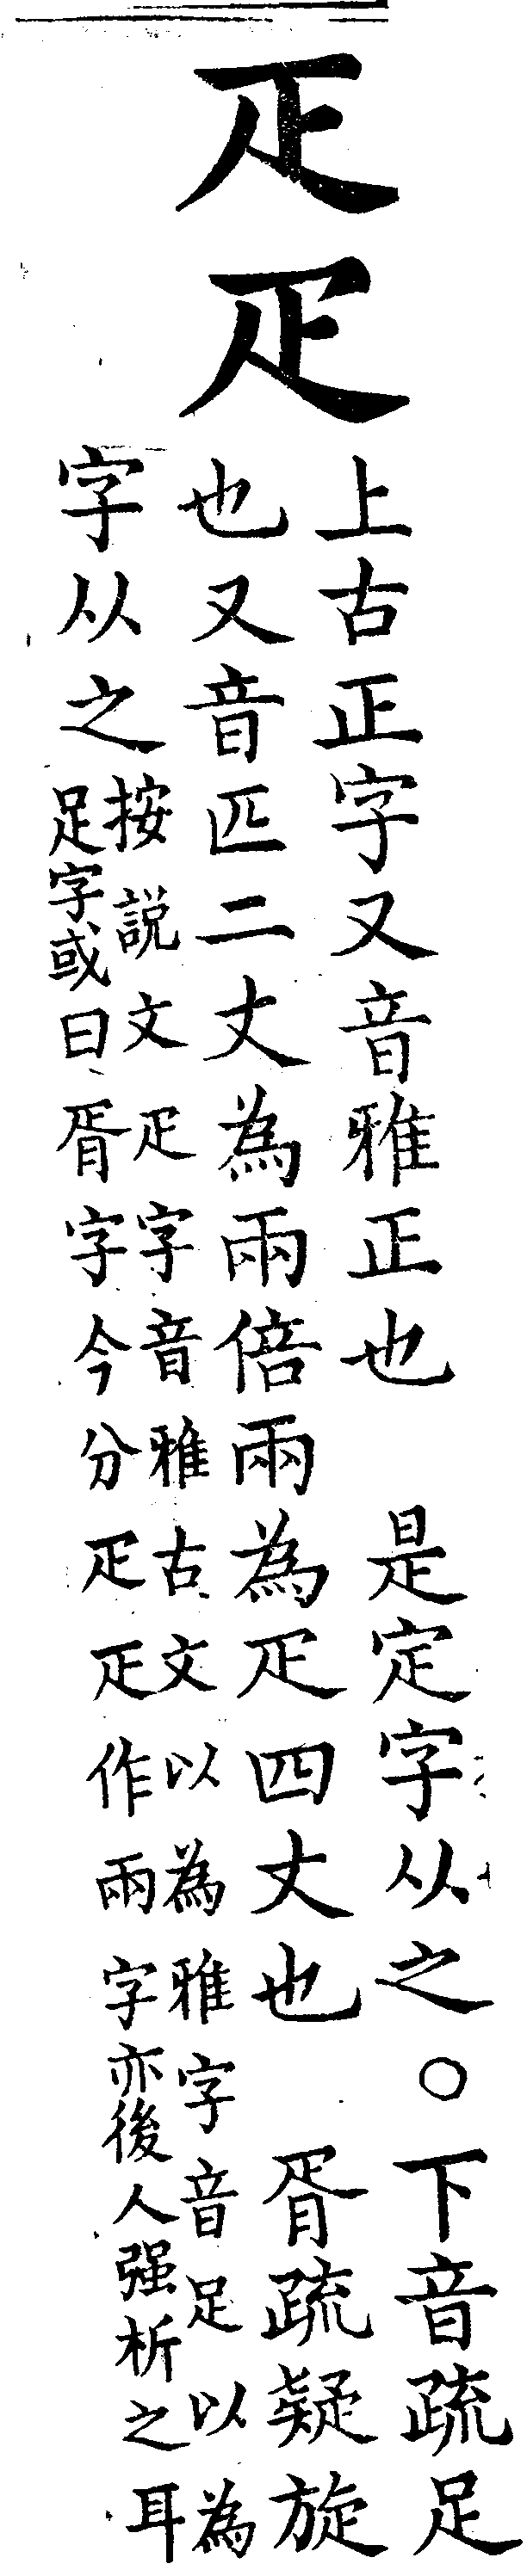 𤴓疋
上古正字又音雅正也　是定字从之○下音疏足
也又音匹二丈為兩倍兩為疋四丈也　胥疏疑旋
字从之
按説文疋字音雅古文以為雅字音足以為
足字或曰胥字今分疋𤴓作兩字亦後人强析之耳